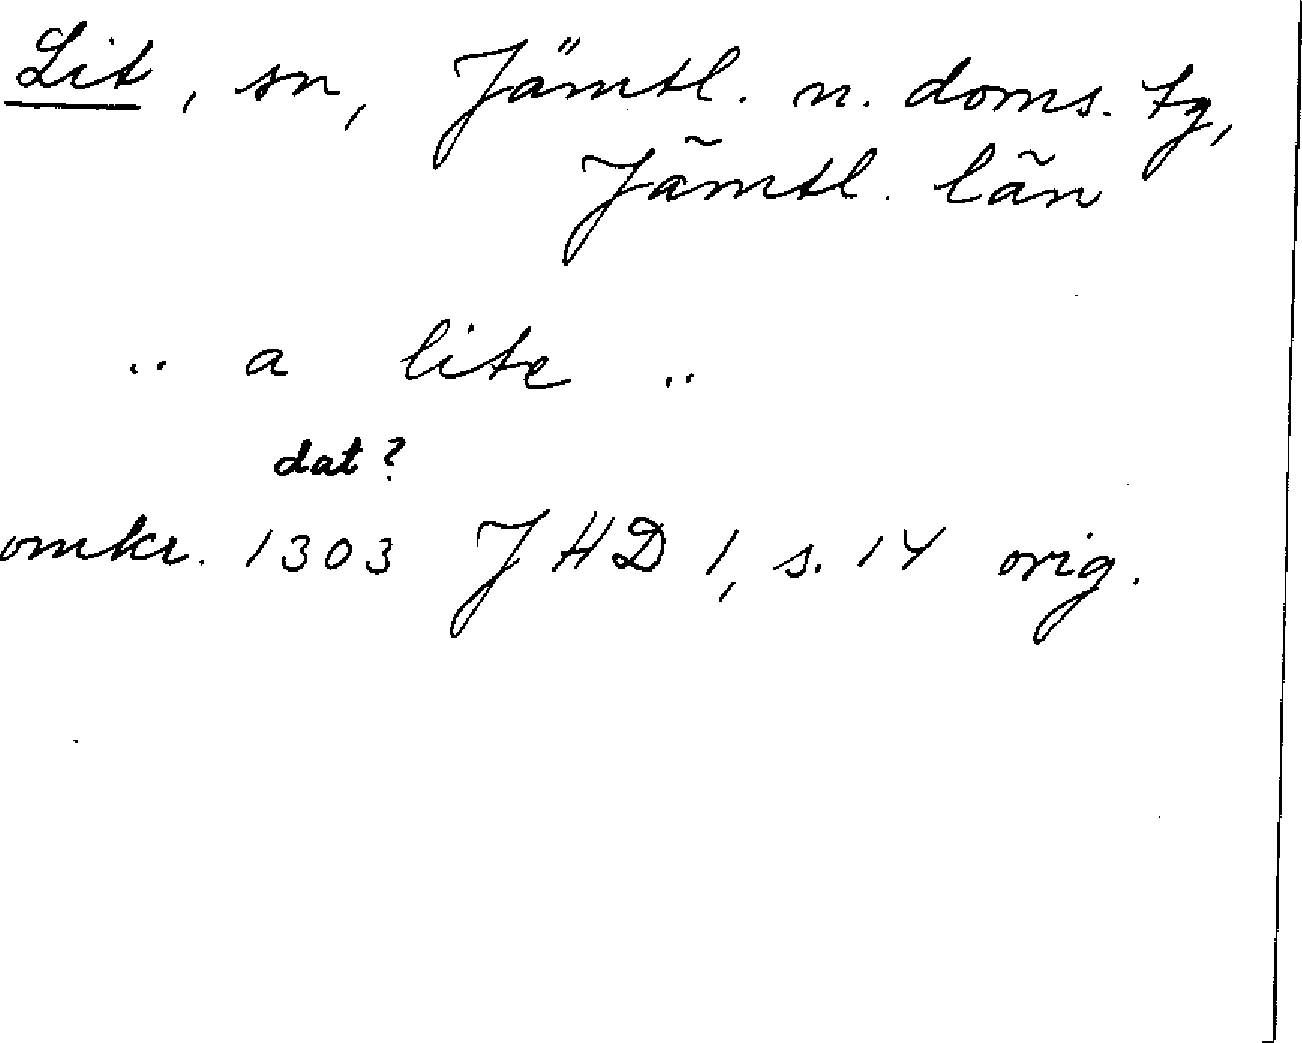 Lit, sn, Jämtl. n. doms. tg,
Jämtl. län
.. a lite ..
dat?
omkr. 1303 JHD 1, s. 14 orig.